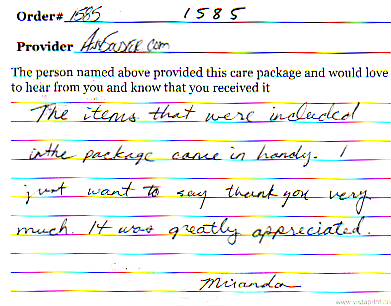 Order# 1585 1585
Provider
The person named above provided this care package and would love
to hear from you and know that you received it
The items that were included
in the package come in handy. I
just want to say thank you very
much. It was greatly appreciated.
Miranda